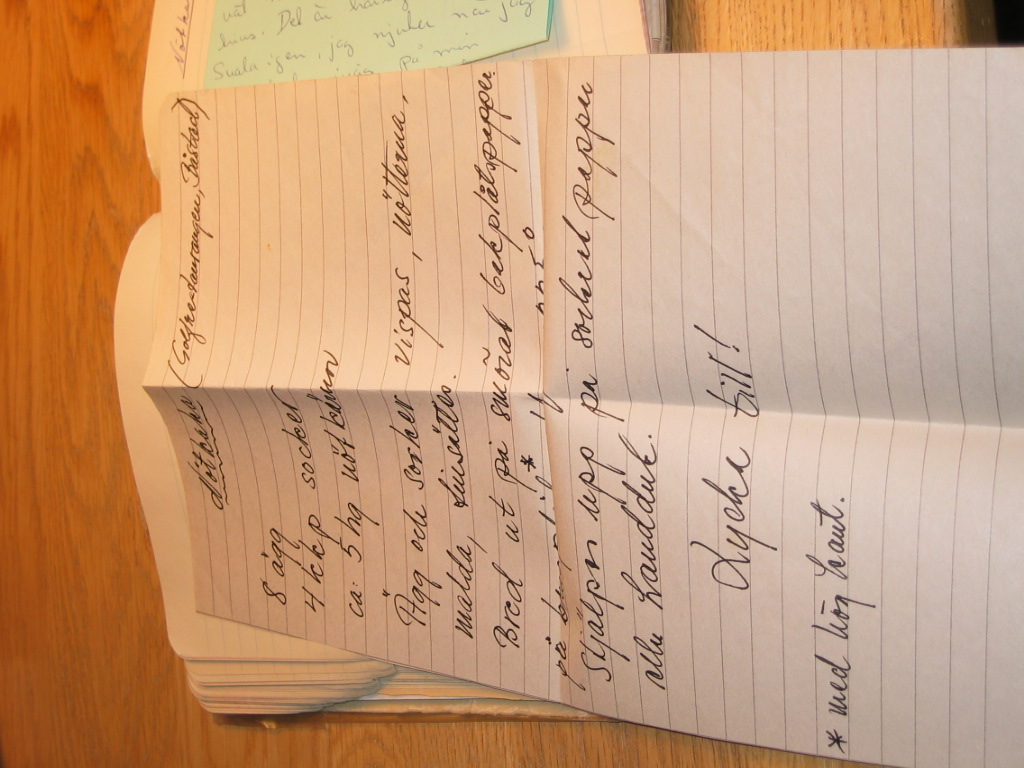 (Golfrestaurangen, Båstad)
8 ägg
4 kkp socker
ca: 5 hg nötkärnor
Ägg och socker vispas, nötterna,
malda, tillsättes.
Bred ut på smörat bakplåtspapper
på
Stjälpn upp på sockrat papper
alla handduk.
Lycka till!
* med hög kant.
igen, jag njuter när jag
på min